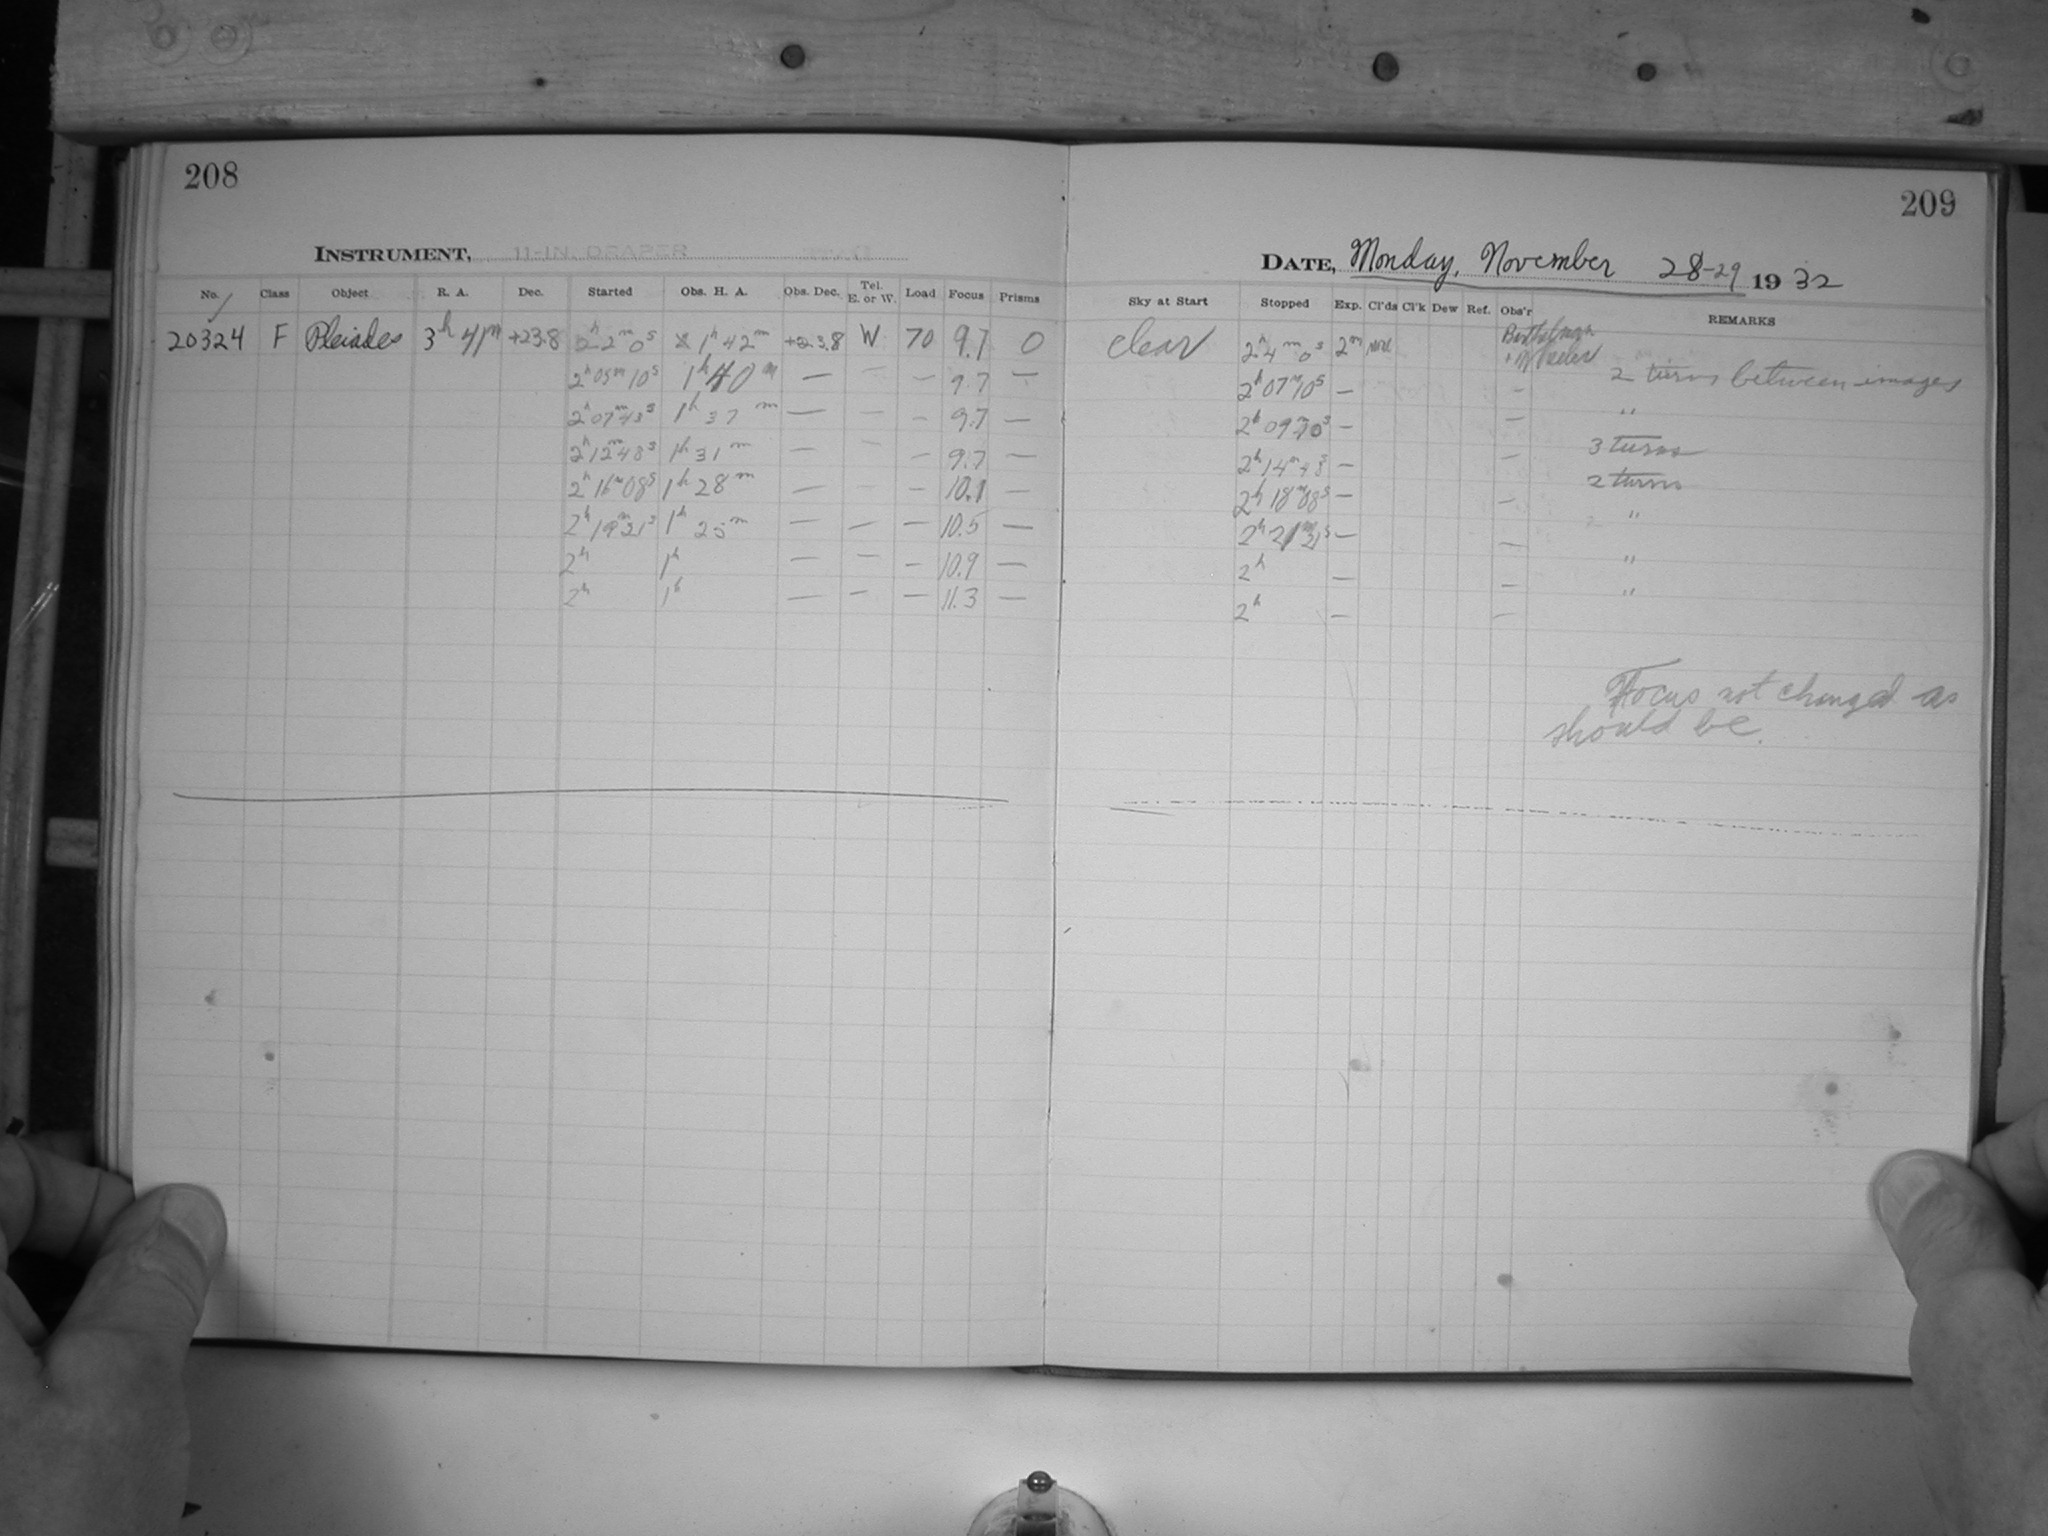 208
INSTRUMENT,
No. Class Object R. A. Dec. Started Obs. H. A. Obs. Dec. Tel. E. or W. Load Focus Prisms
20324 F Pleiades 3h 41m +23.8 2h 2m 0s 1h 42m +23.8 W 70 9.7 0
2h 05m 10s 1h 40m — — — 9.7 —
2h 07m 43s 1h 37m — — — 9.7 —
2h 12m 48s 1h 31m — — — 9.7 —
2h 16m 08s 1h 28m — — — 10.1 —
2h 19m 21s 1h 25m — — — 10.5 —
2h 1h — — — 10.9 —
2h 1h — — — 11.3 —
209
DATE, Monday, November 28-29 1932
Sky at Start Stopped Exp. Cl'ds Cl'k Dew Ref. Obs'r REMARKS
clear 2h 4m 0s 2m
2h 07m 10s — — 2 turns between images
2h 09m — — "
2h 14m 48s — — 3 turns
2h 18m 08s — — 2 turns
2h 21m 21s — — "
2h — — "
2h — — "
Focus not changed as
should be.